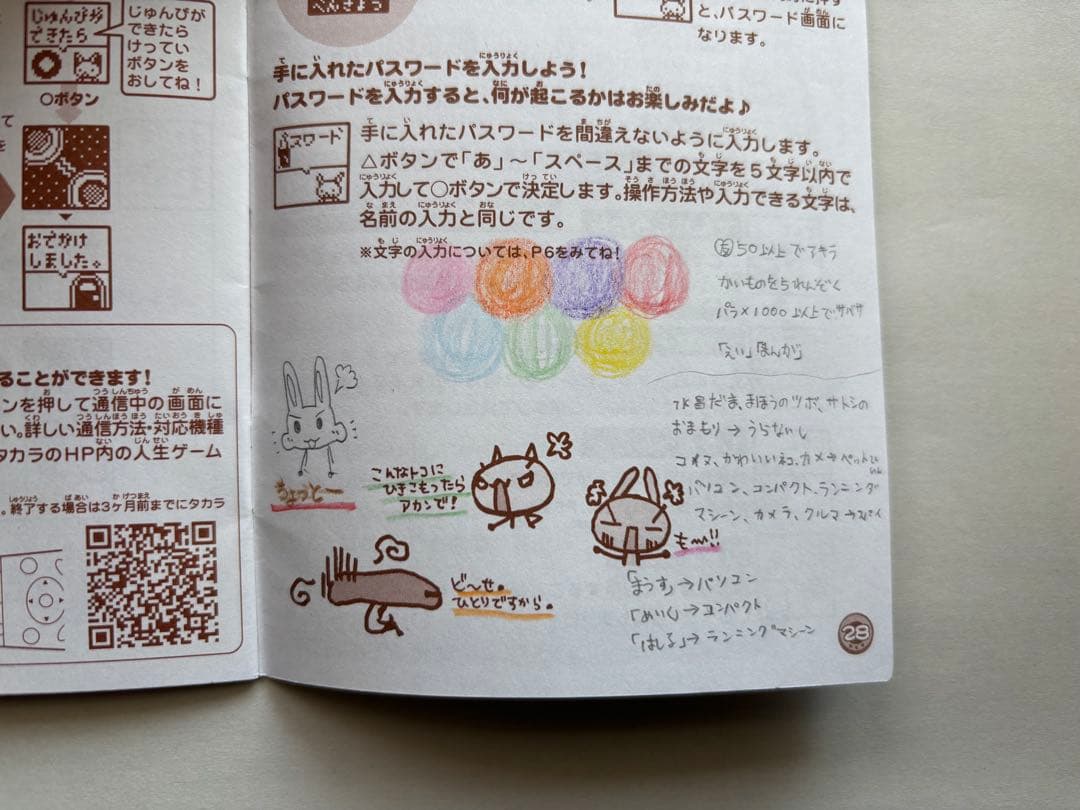 じゅんびが
できたら
じゅんびが
できたら
けってい
ボタンを
おしてね!
○ボタン
おでかけ
しました。
ることができます!
ンを押して通信中の画面に
い。詳しい通信方法・対応機種
タカラのHP内の人生ゲーム
。終了する場合は3ヶ月前までにタカラ
と、パスワード画面に
なります。
手に入れたパスワードを入力しよう!
パスワードを入力すると、何が起こるかはお楽しみだよ♪
パスワード
手に入れたパスワードを間違えないように入力します。
△ボタンで「あ」~「スペース」までの文字を5文字以内で
入力して○ボタンで決定します。操作方法や入力できる文字は、
名前の入力と同じです。
※文字の入力については、P6をみてね!
50以上でアキラ
かいものを5れんぞく
パラ×1000以上でサベサ
「えい」「まんが」
水晶だま、まほうのツボ、サトシの
おまもり→うらないし
コイヌ、かわいいネコ、カメ→ペット
パソコン、コンパクト、ランニング
マシーン、カメラ、クルマ→スパイ
ちょっとー
こんなトコに
ひきこもったら
アカンで!
も~!!
ど~せ。
ひとりですから。
「まうす」→パソコン
「めいく」→コンパクト
「はしる」→ランニングマシーン
28